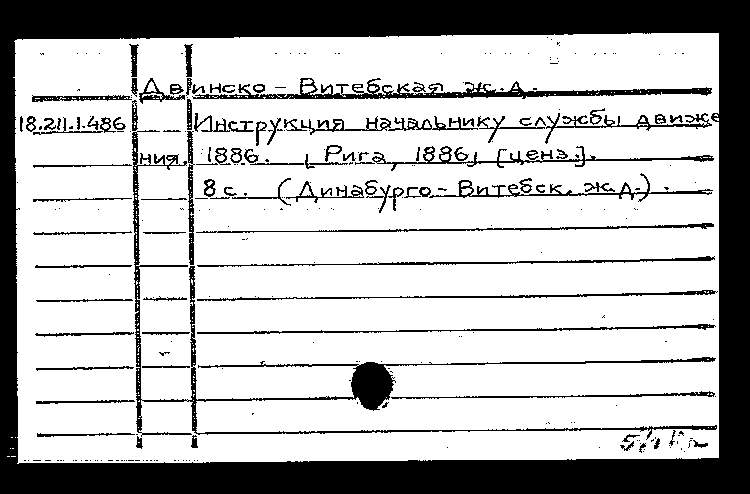 Двинско - Витебская ж.д.
18.211.1.486 Инструкция начальнику службы движе
ния. 1886. [Рига, 1886] [ценз.].
8 с. (Динабурго - Витебск. ж.д.).